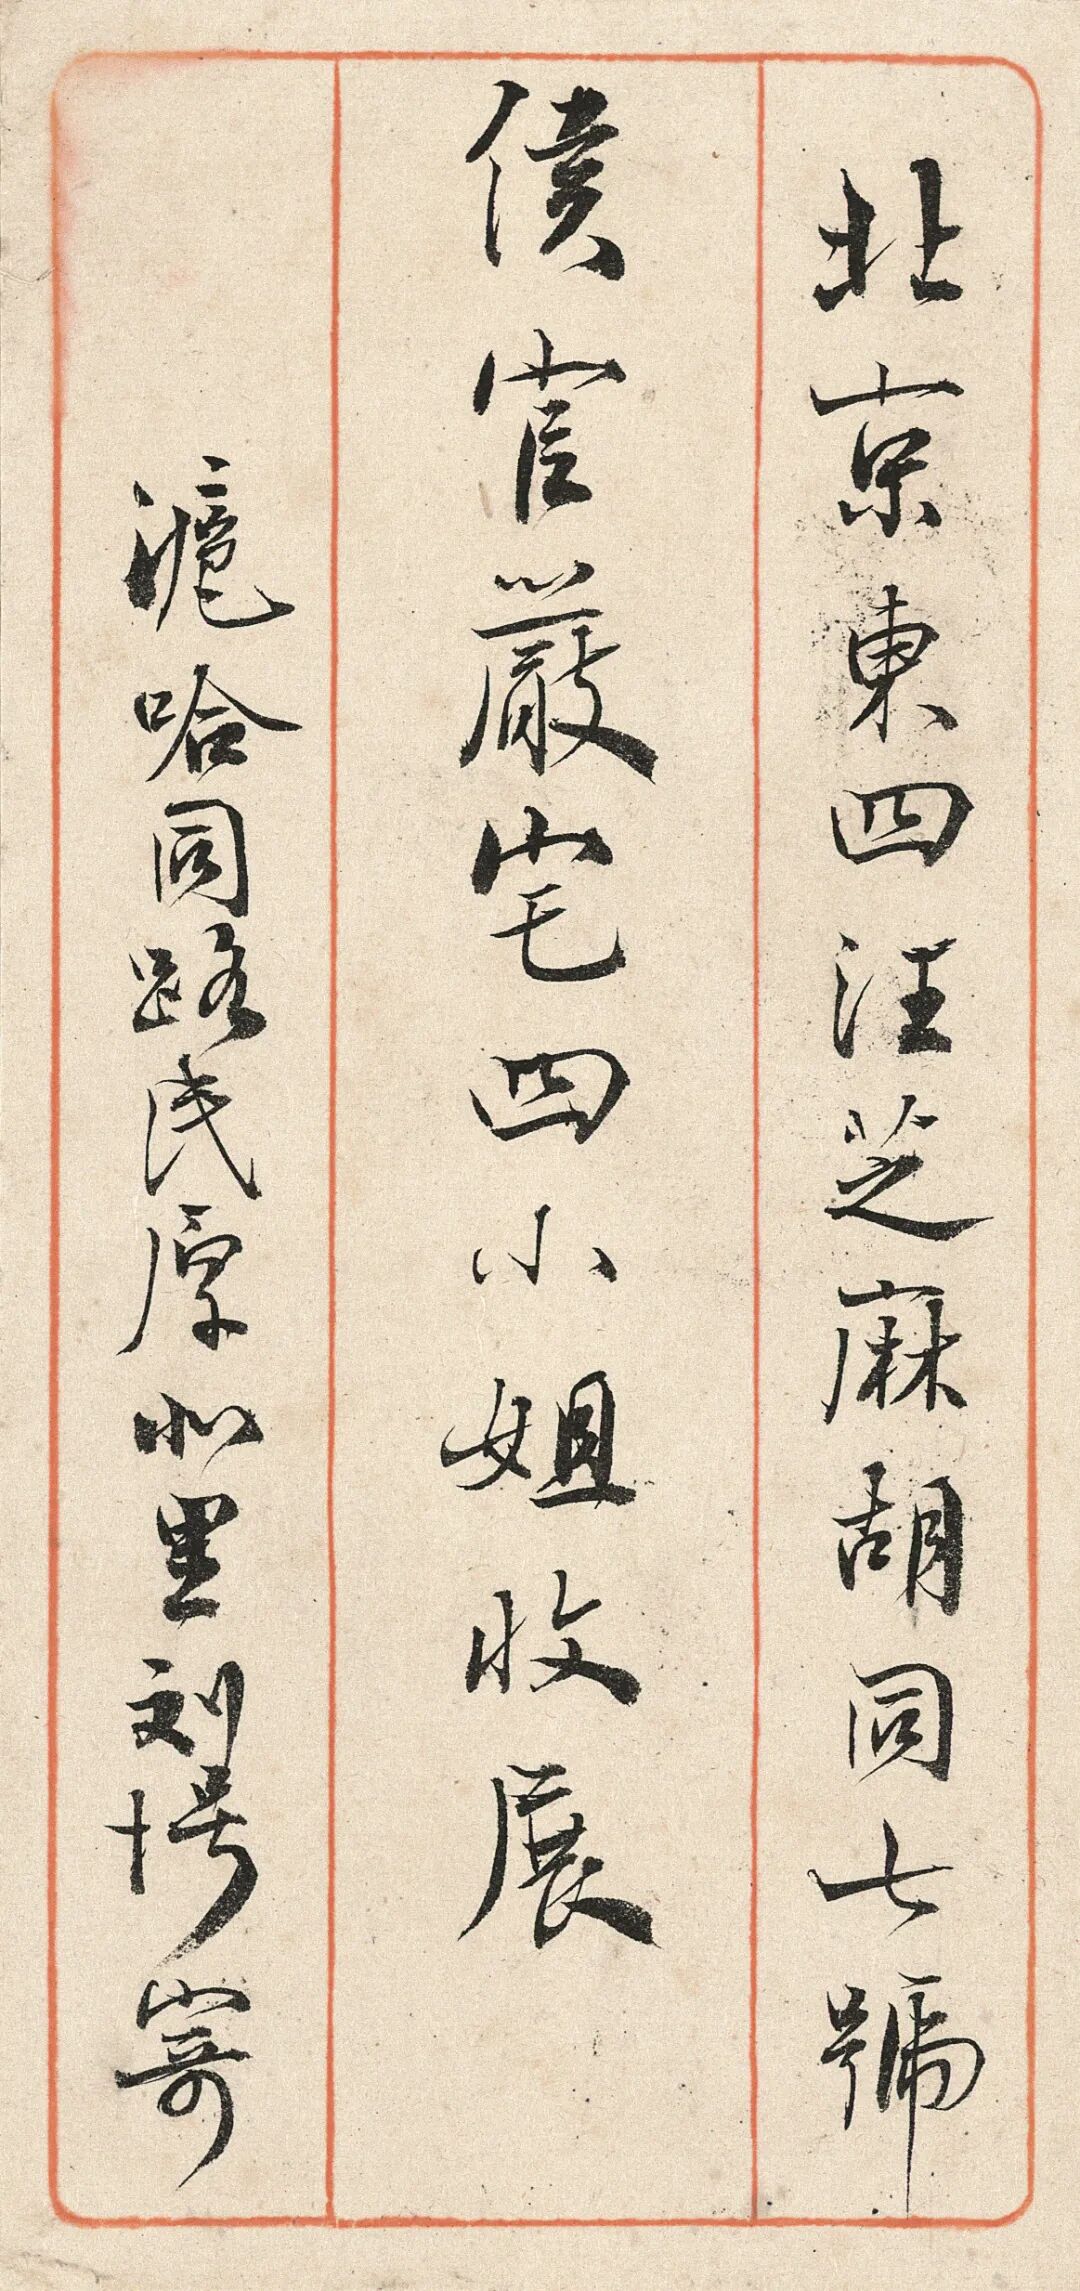 北京東四汪芝麻胡同七號
侯官嚴宅四小姐收展
滬哈同路民厚北里〩〢十号寄